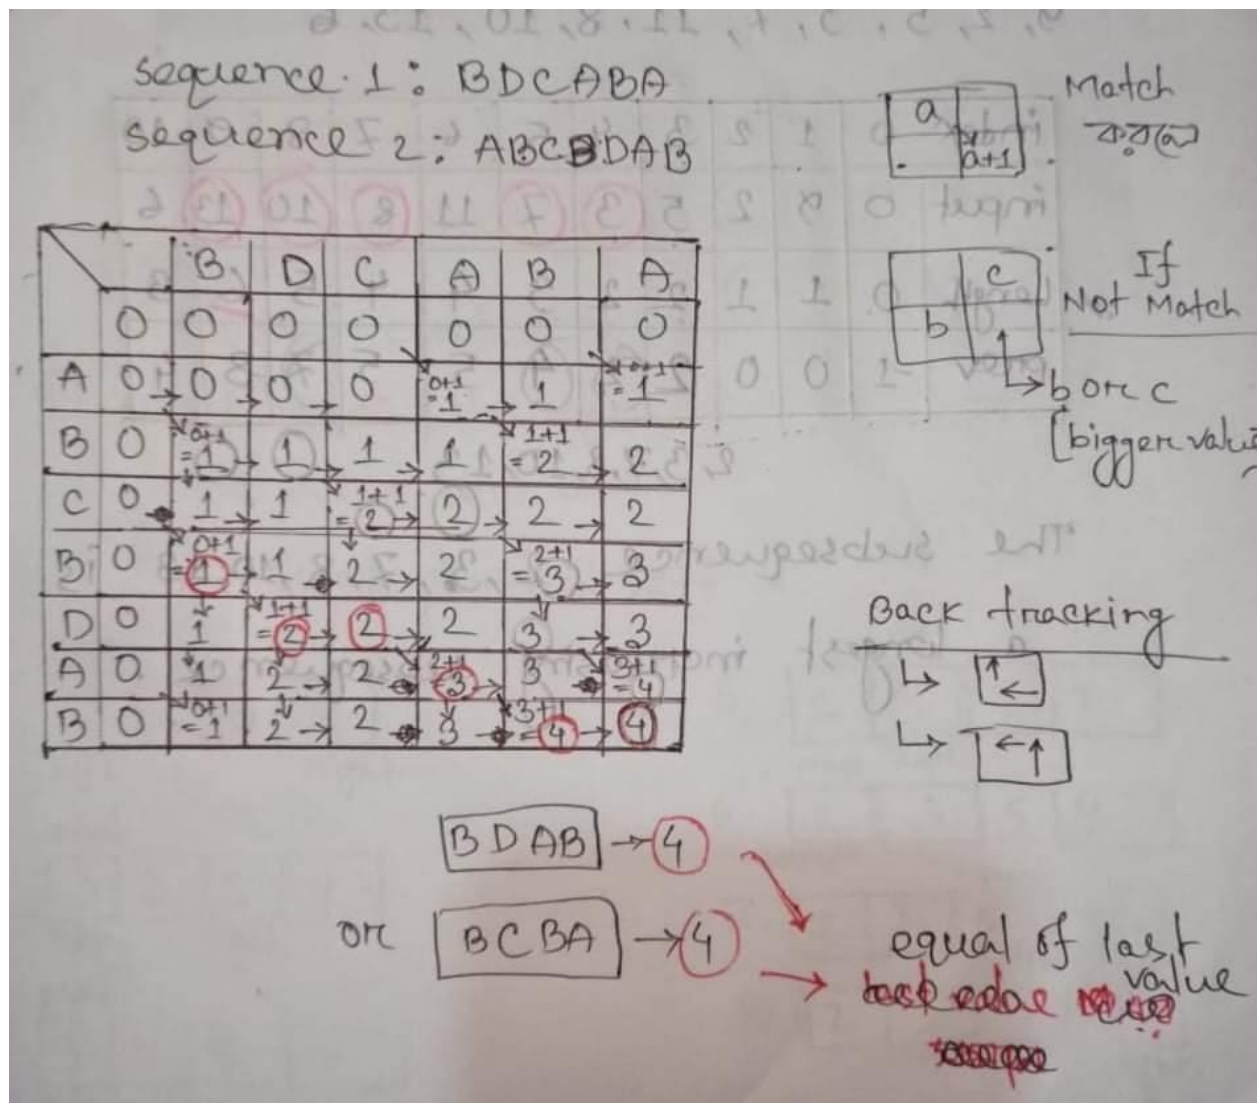 sequence 1: BDCABA
sequence 2: ABCBDAB
a
a+1
Match
করলে
c
b
If
Not Match
b or c
(bigger value)
B D C A B A
0 0 0 0 0 0 0
A 0 0 0 0 0+1 =1 1 0+1 =1
B 0 0+1 =1 1 1 1 1+1 =2 2
C 0 1 1 1+1 =2 2 2 2
B 0 0+1 =1 1 2 2 2+1 =3 3
D 0 1 1+1 =2 2 2 3 3
A 0 1 2 2 2+1 =3 3 3+1 =4
B 0 0+1 =1 2 2 3 3+1 =4 4
Back tracking
↳ ↑←
↳ ←↑
BDAB → 4
or BCBA → 4
equal of last
value